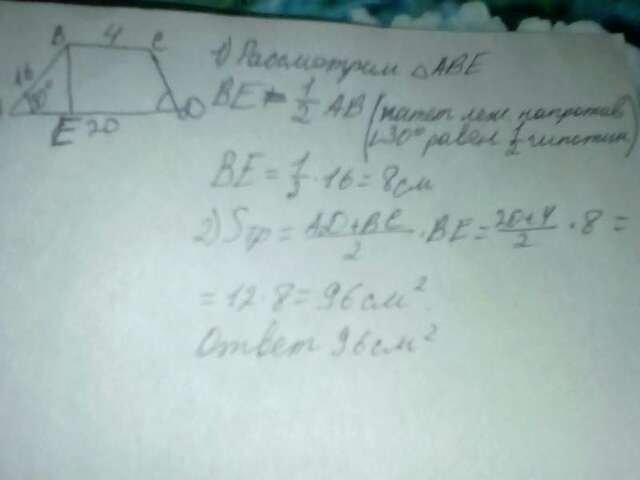 B 4 C
16
30°
E 20 D
1) Рассмотрим △ABE
BE = 1/2 AB (катет леж напротив
∠30° равен 1/2 гипотин)
BE = 1/2 · 16 = 8 см
2) Sтр = AD+BC/2 · BE = 20+4/2 · 8 =
= 12 · 8 = 96 см²
Ответ 96 см²